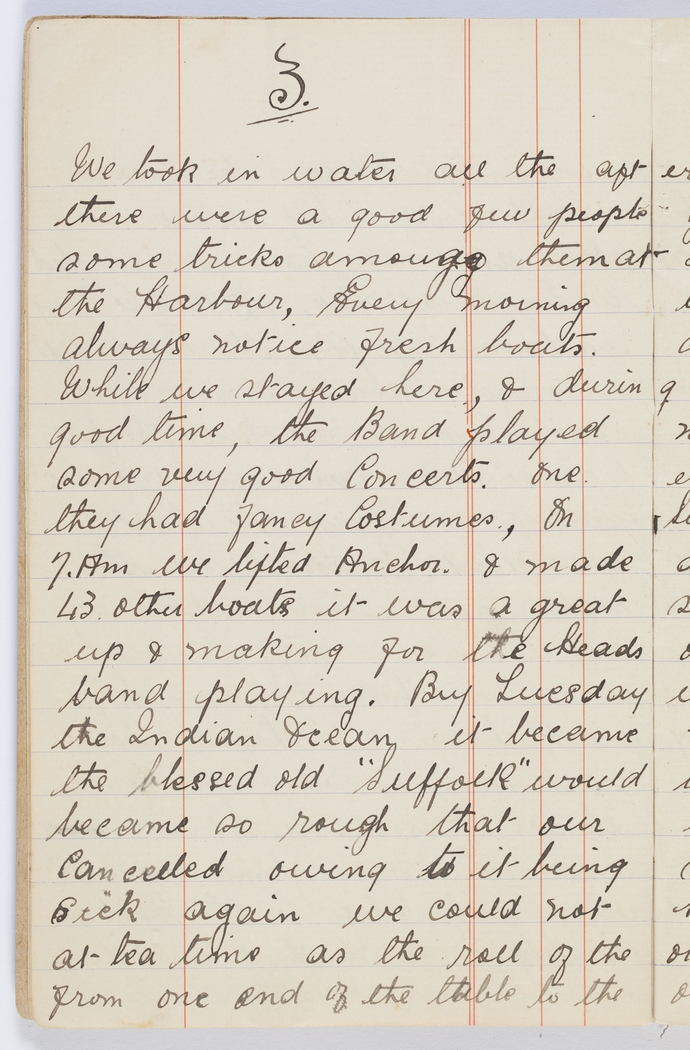 3.
We took in water all the aft er
there were a good few people
some tricks amoung them at
the Harbour, Every morning
always notice fresh boats.
While we stayed here, & durin g
good time, the Band played
some very good Concerts. One
they had fancy Costumes, On
7.Am we lifted Anchor. & made
43. other boats it was a great
up & making for the Heads
band playing. Buy Tuesday
the Indian Ocean it became
the blessed old "Suffolk" would
became so rough that our
Cancelled owing to it being
Sick again we could not
at tea time as the roll of the
from one end of the table to the